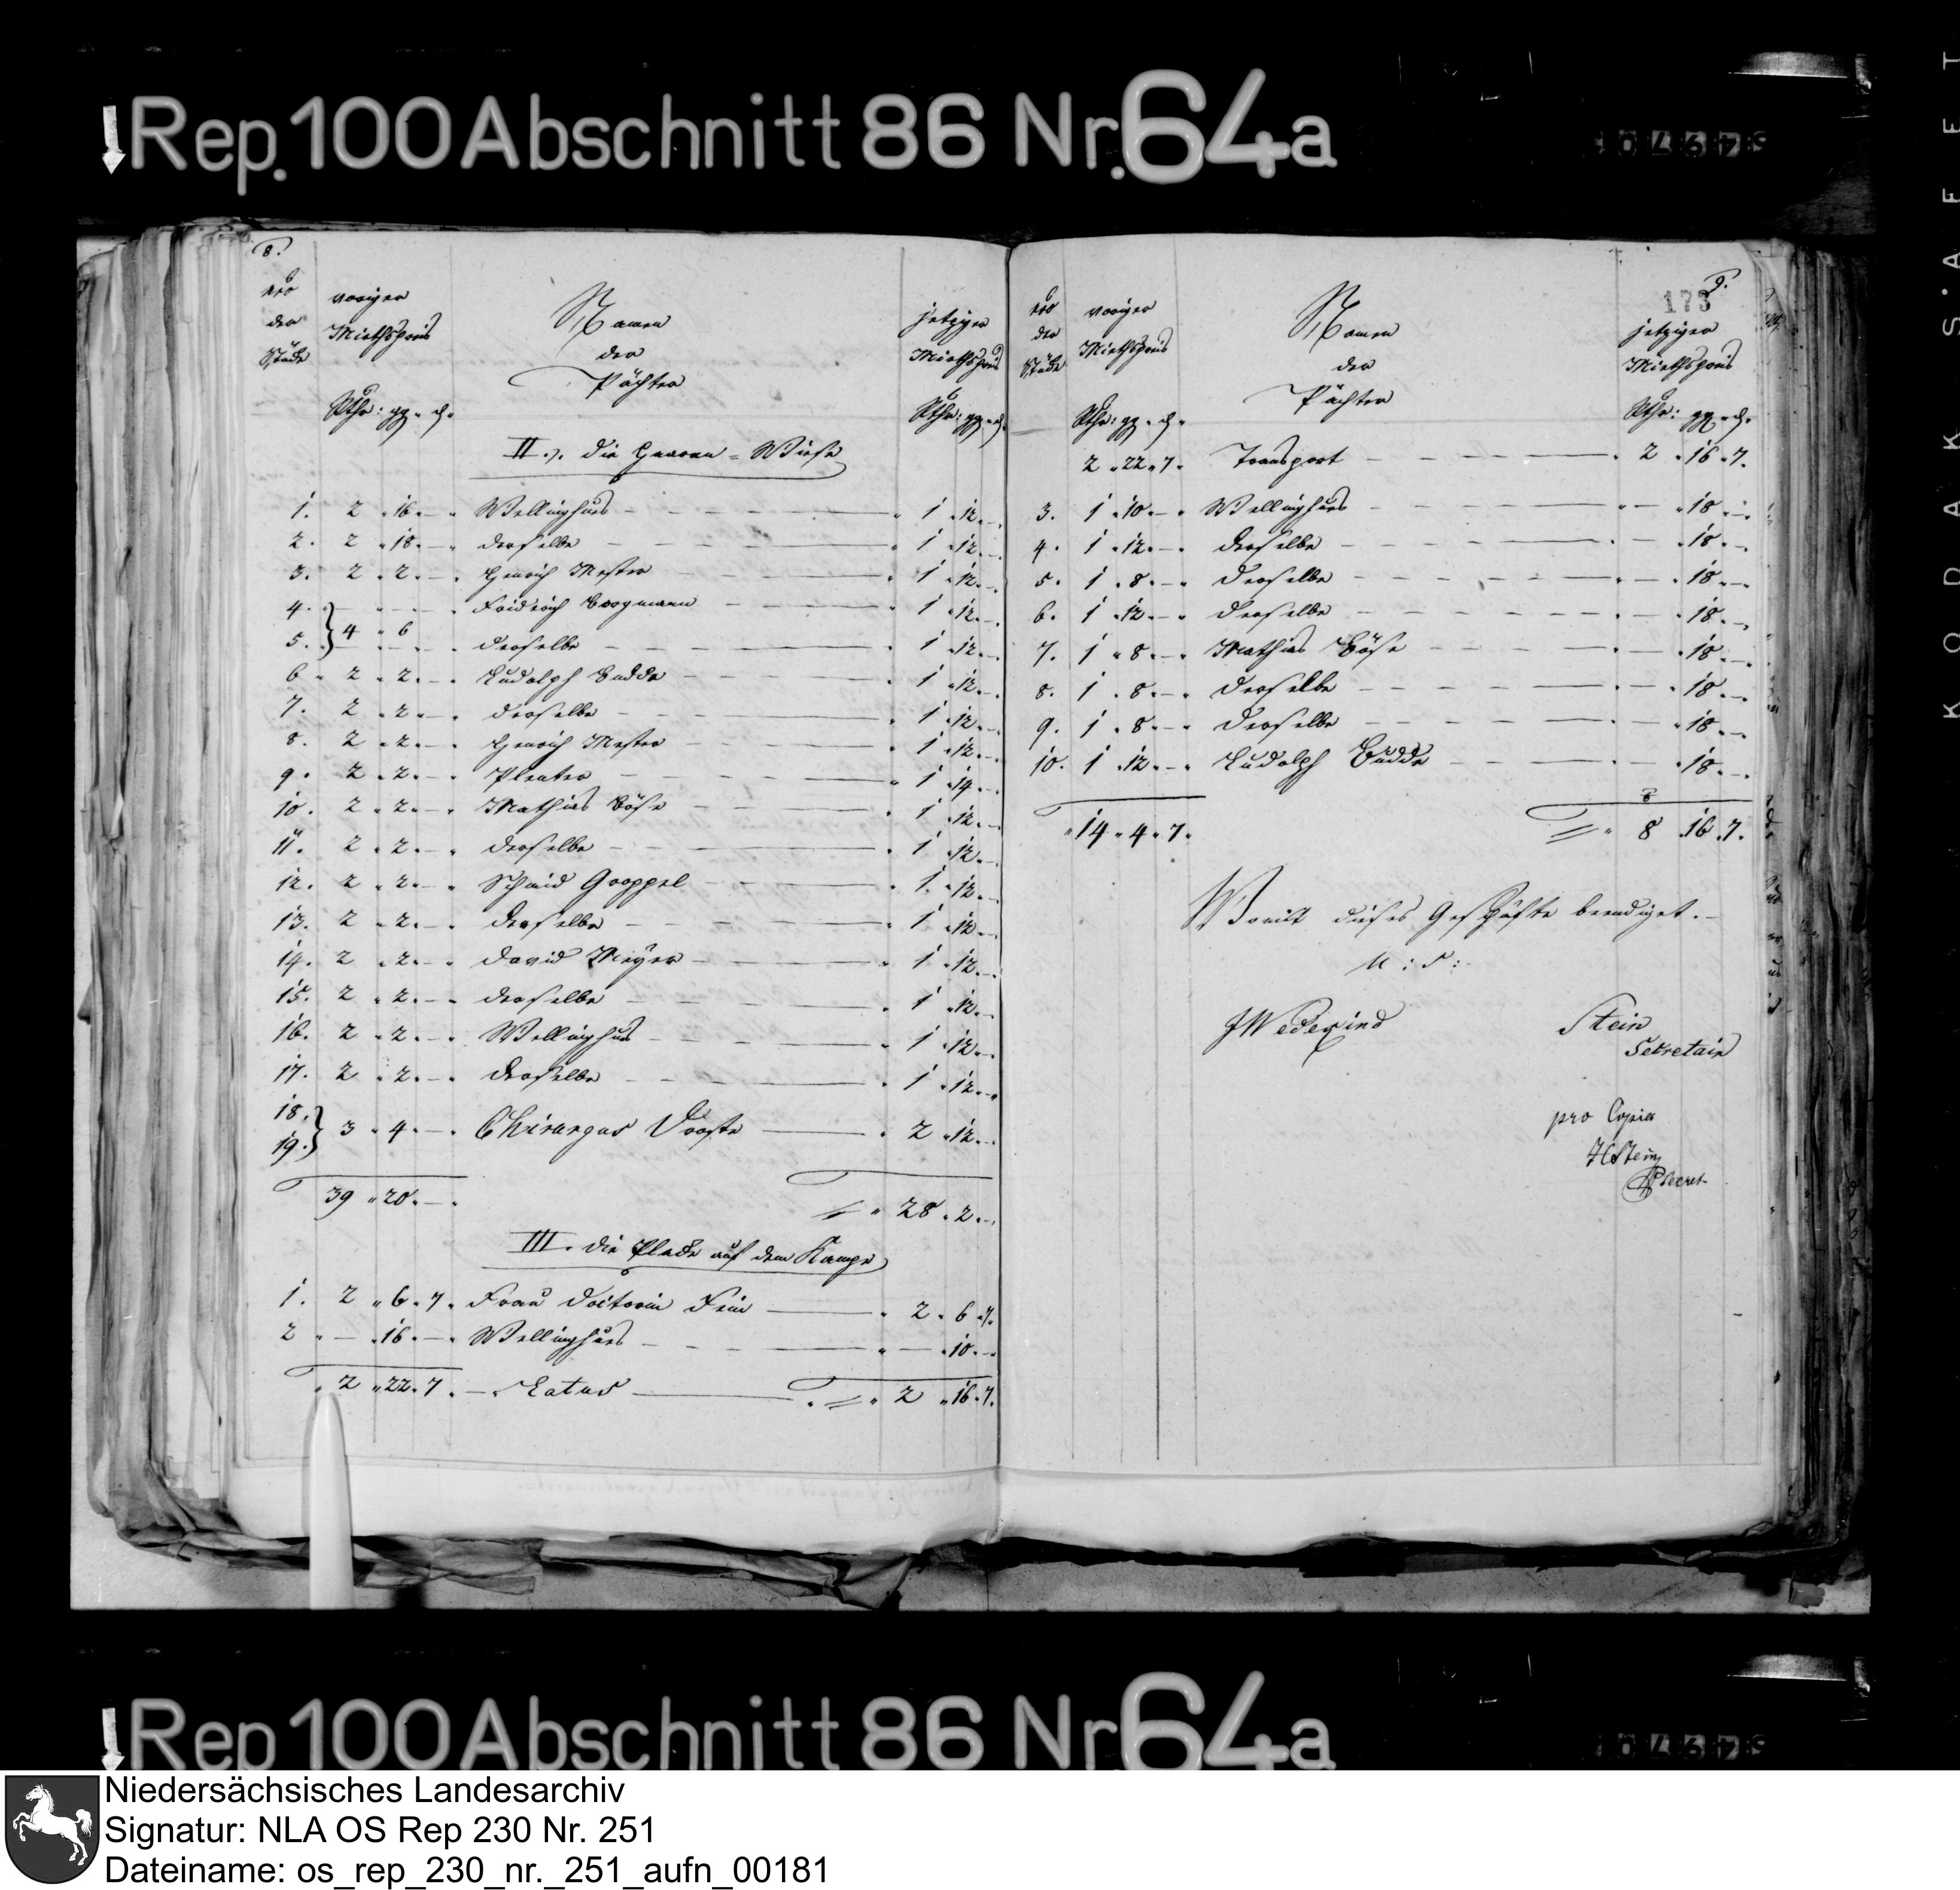 Rep. 100 Abschnitt 86 Nr. 64a
8.
Nro voriger Namen jetziger
der Miethspreis der Miethspreis
Stücke Pächter
Rthr: gg. d. Rthr: gg. d.
II. Die Herren-Wiese
1. 2 „ 16. — „ Wellinghus — 1 „ 12. —
2. 2 „ 18. — „ derselbe — 1 „ 12. —
3. 2 „ 2. — „ Henrich Mester — 1 „ 12. —
4. } — „ Fridrich Borgmann — 1 „ 12. —
5. } 4 „ 6 — „ derselbe — 1 „ 12. —
6 „ 2 „ 2. — „ Ludolph Budde — 1 „ 12. —
7. 2 „ 2. — „ derselbe — 1 „ 12. —
8. 2 „ 2. — „ Henrich Mester — 1 „ 12. —
9. 2 „ 2. — „ — 1 „ 14. —
10. 2 „ 2. — „ Mathias Böse — 1 „ 12. —
11. 2 „ 2. — „ derselbe — 1 „ 12. —
12. 2 „ 2. — „ — 1 „ 12. —
13. 2 „ 2. — „ derselbe — 1 „ 12. —
14. 2 „ 2. — „ David Meyer — 1 „ 12. —
15. 2 „ 2. — „ derselbe — 1 „ 12. —
16. 2 „ 2. — „ Wellinghus — 1 „ 12. —
17. 2 „ 2. — „ derselbe — 1 „ 12. —
18. }
19. } 3 „ 4. — „ Chirurgus Droste — 2 „ 12. —
39 „ 20. — „ 28 „ 2. —
III. Die Placke auf dem Kampe
1. 2 „ 6. 7. Frau Doctorin Fein — 2 „ 6 „ 7.
2 „ — „ 16. — „ Wellinghus — „ — „ 10. —
„ 2 „ 22. 7. — Latus — „ 2 „ 16. 7.
9.
173
Nro voriger Namen jetziger
der Miethspreis der Miethspreis
Stücke Pächter
Rthr: gg. d. Rthr: gg. d.
2 „ 22 „ 7. Transport — 2 „ 16 „ 7.
3. 1 „ 10. — „ Wellinghus — „ 18. —
4. 1 „ 12. — „ derselbe — „ 18. —
5. 1 „ 8. — „ derselbe — „ 18. —
6. 1 „ 12. — „ derselbe — „ 18. —
7. 1 „ 8. — „ Mathias Böse — „ 18. —
8. 1 „ 8. — „ derselbe — „ 18. —
9. 1 „ 8. — „ derselbe — „ 18. —
10. 1 „ 12. — „ Ludolph Budde — „ 18. —
„ 14 „ 4 „ 7. 8 „ 16. 7.
Womit dieses Geschäfte beendiget. —
u: s:
JWedekind Stein
Secretair
pro Copia
HStein
Secret.
Rep 100 Abschnitt 86 Nr. 64a
KODAK SAFET
Niedersächsisches Landesarchiv
Signatur: NLA OS Rep 230 Nr. 251
Dateiname: os_rep_230_nr._251_aufn_00181